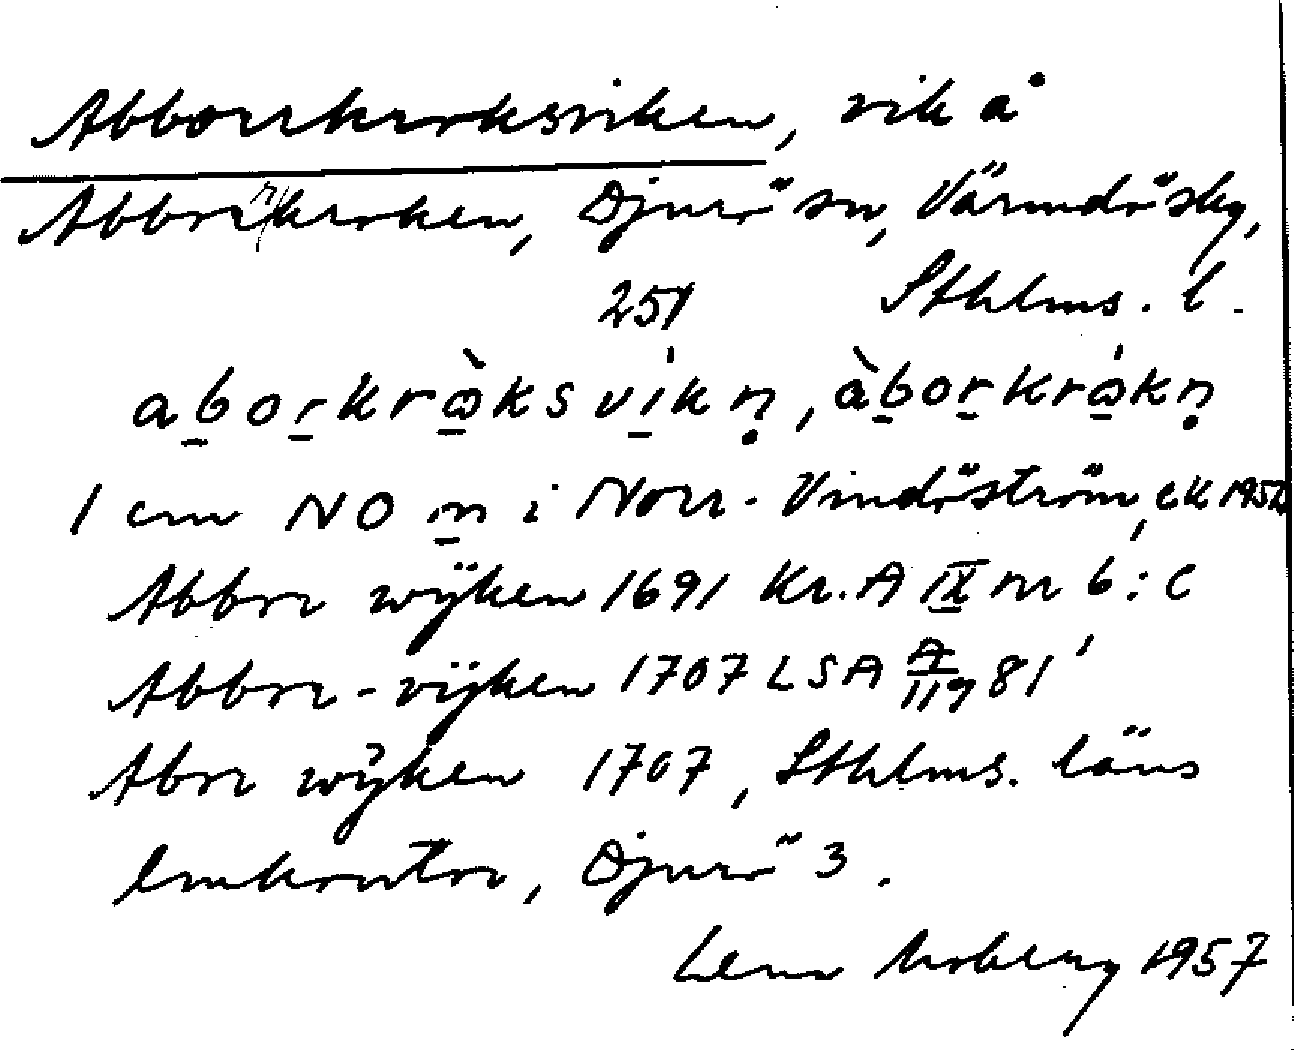 Abborrkroksviken, vik å
Abborrkroken, Djurö sn, Värmdö skg,
251 Sthlms. l.
abo̠rkrɷ̀ksvíkṇ, àbo̠rkrɷ́kṇ
1 cm NO m i Norr-Vindöström, ek 1952
Abbor wÿken 1691 Kr. A IX nr 6:c
Abbor-vijken 1707 LSA A/119 81
Abor wÿken 1707, Sthlms. läns
lmkontor, Djurö 3.
Lena Moberg 1957